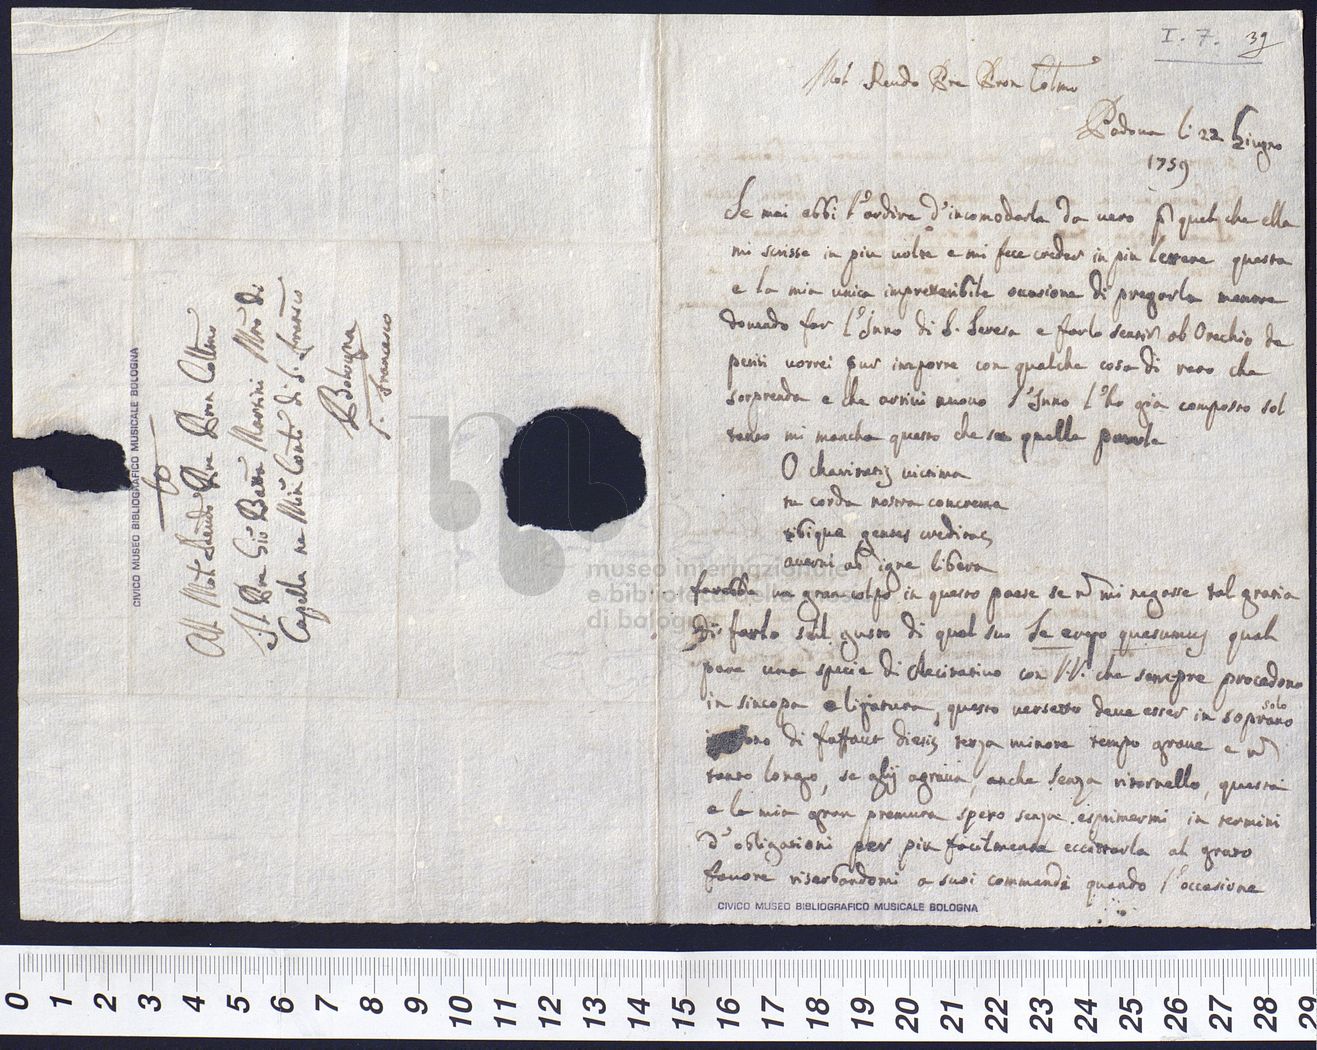 I. 7. 39
Molt Rendo Pre Pron Colmo
Padova li 22 Giugno
1759
Se mai ebbi l'ardire d'incomodarla da vero p quel che ella
mi scrisse in piu volte e mi fece creder in piu lettere questa
e la mia unica impreteribile occasione di pregarla mentre
dovendo far l'Inno di S. Teresa e farlo sentir ad Orechio de
periti vorrei pur imporre con qualche cosa di raro che
sorprenda e che arrivi nuovo l'Inno l'ho già composto sol
tanto mi manca questo che sa quelle parole
O charitatis victima
tu corda nostra concrema
tibique gentes creditas
averni ab igne libera
farebbe un gran colpo in questo paese se n mi negasse tal grazia
Di farlo sul gusto di quel suo Te ergo quesumus qual
pare una specie di Recitativo con V.V. che sempre procedono
in sincopa e ligatura, questo versetto deve esser in soprano solo
tono di faffaut diesis terza minore tempo grave e n
tanto longo, se glij agrada, anche senza ritornello, questa
e la mia gran premura spero senza esprimermi in termini
d'obligazioni per piu facilmente eccitarla al grato
favore riserbandomi a suoi commandi quando l'occasione
CIVICO MUSEO BIBLIOGRAFICO MUSICALE BOLOGNA
Al Molt Rendo Pre Pron Colmo
Il Pre Gio Batta Martini Mro di
Capella ne Min Conti di S. Franco
Bologna
S. Francesco
CIVICO MUSEO BIBLIOGRAFICO MUSICALE BOLOGNA
museo internazionale
e biblioteca della musica
di bologna
0 1 2 3 4 5 6 7 8 9 10 11 12 13 14 15 16 17 18 19 20 21 22 23 24 25 26 27 28 29